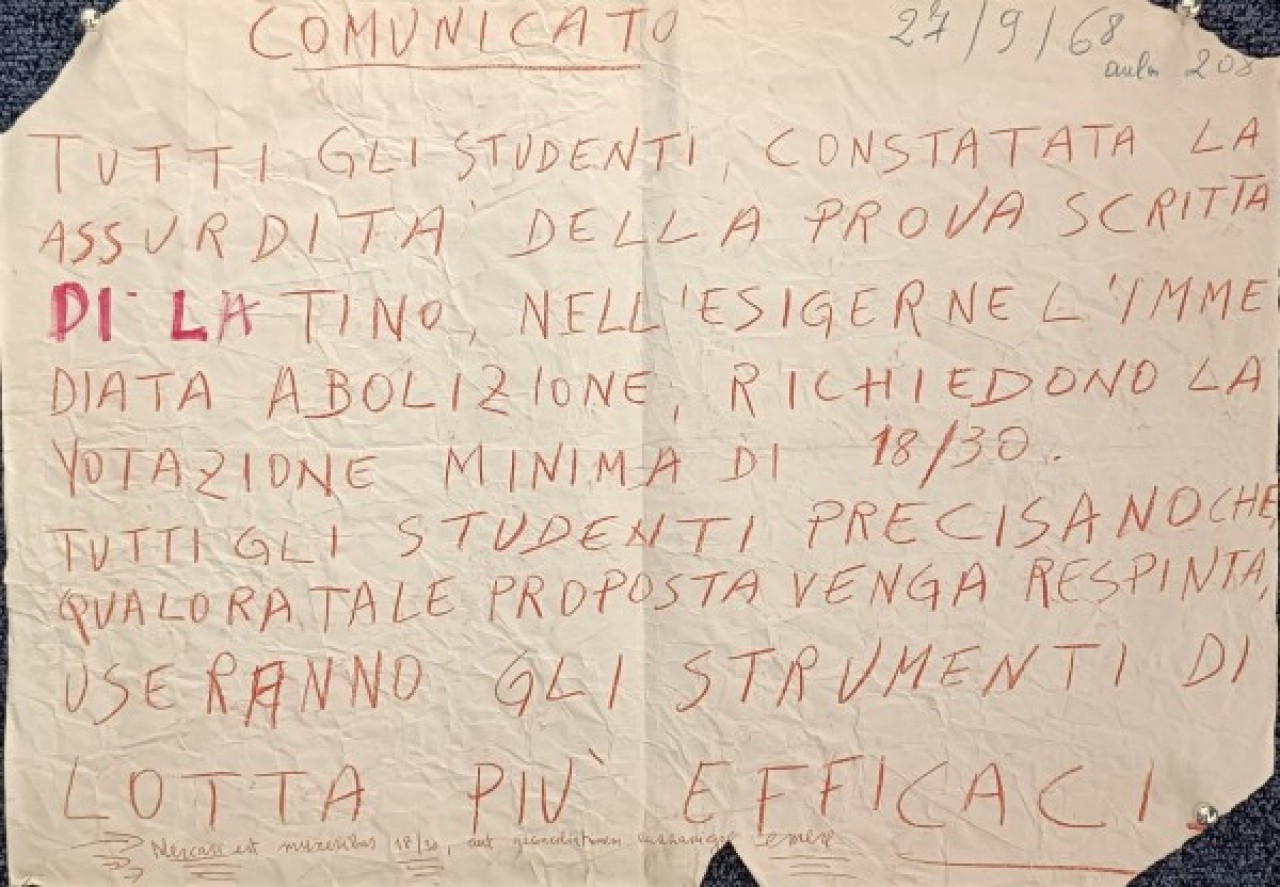 COMUNICATO
27/9/68
aula 208
TUTTI GLI STUDENTI, CONSTATATA LA
ASSURDITA' DELLA PROVA SCRITTA
DI LATINO, NELL'ESIGERNE L'IMME
DIATA ABOLIZIONE, RICHIEDONO LA
VOTAZIONE MINIMA DI 18/30.
TUTTI GLI STUDENTI PRECISANO CHE,
QUALORA TALE PROPOSTA VENGA RESPINTA,
USERANNO GLI STRUMENTI DI
LOTTA PIÙ EFFICACI.
est 18/30, aut